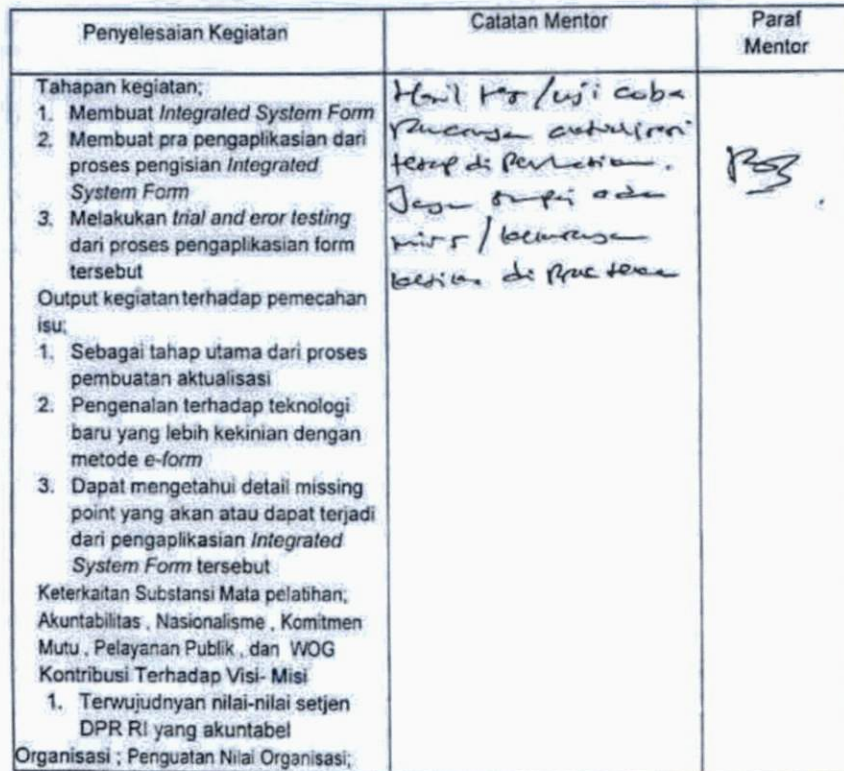 Penyelesaian Kegiatan
Catatan Mentor
Paraf
Mentor
Tahapan kegiatan;
1. Membuat Integrated System Form
2. Membuat pra pengaplikasian dari
proses pengisian Integrated
System Form
3. Melakukan trial and eror testing
dari proses pengaplikasian form
tersebut
Output kegiatan terhadap pemecahan
isu;
1. Sebagai tahap utama dari proses
pembuatan aktualisasi
2. Pengenalan terhadap teknologi
baru yang lebih kekinian dengan
metode e-form
3. Dapat mengetahui detail missing
point yang akan atau dapat terjadi
dari pengaplikasian Integrated
System Form tersebut
Keterkaitan Substansi Mata pelatihan;
Akuntabilitas , Nasionalisme , Komitmen
Mutu , Pelayanan Publik , dan WOG
Kontribusi Terhadap Visi- Misi
1. Terwujudnyan nilai-nilai setjen
DPR RI yang akuntabel
Organisasi ; Penguatan Nilai Organisasi;
Hasil tes / uji coba
aktualisasi
tetap di
ada
/
di